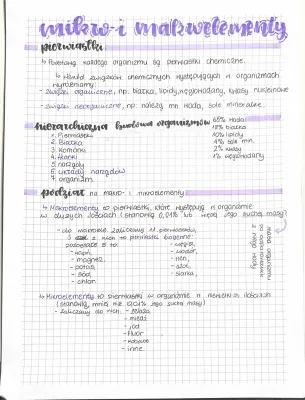 mikro- i makroelementy
pierwiastki
↳ Podstawą każdego organizmu są pierwiastki chemiczne.
↳ Wśród związków chemicznych występujących w organizmach
wyróżniamy:
- związki organiczne, np: białka, lipidy, węglowodany, kwasy nukleinowe
- związki nieorganiczne, np: należą m.in. woda, sole mineralne.
hierarchiczna budowa organizmów
1. Pierwiastki
2. Białka
3. Komórki
4. Tkanki
5. narządy
6. układy narządów
7. organizm.
65% woda
18% białka
10% lipidy
4% sole min.
2% kwasy
1% węglowodany
podział na makro- i mikroelementy
↳ Makroelementy to pierwiastki, które występują w organizmie
w dużych ilościach (stanowią 0,01% lub więcej jego suchej masy)
- do makroele. zaliczamy 11 pierwiastków,
z nich to pierwiastki biogenne:
pozostałe 5 to:
- wapń,
- magnez,
- potas,
- sód,
- chlor
- węgiel,
- wodór,
- tlen,
- azot,
- siarka,
masa organizmu
po odparowaniu
z niego wody
↳ Mikroelementy to pierwiastki w organizmie w niewielkich ilościach
(stanowią mniej niż 0,01% jego suchej masy)
- zaliczamy do nich: - żelazo
- miedź
- jod
- fluor
- kobalt
- inne.